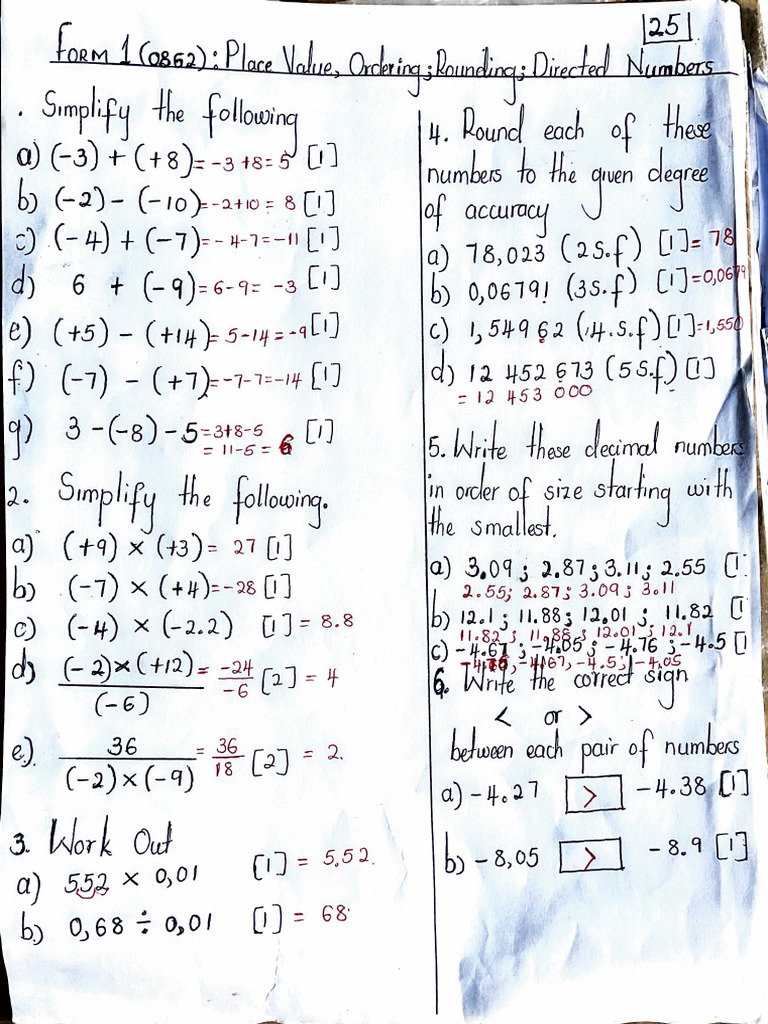 25
FORM 1 (0862): Place Value, Ordering; Rounding; Directed Numbers
. Simplify the following
a) (-3) + (+8) = -3 +8 = 5 [1]
b) (-2) - (-10) = -2+10 = 8 [1]
c) (-4) + (-7) = -4-7 = -11 [1]
d) 6 + (-9) = 6-9 = -3 [1]
e) (+5) - (+14) = 5-14 = -9 [1]
f) (-7) - (+7) = -7-7 = -14 [1]
g) 3 -(-8) - 5 = 3+8-5 [1]
= 11-5 = 6
2. Simplify the following.
a) (+9) × (+3) = 27 [1]
b) (-7) × (+4) = -28 [1]
c) (-4) × (-2.2) [1] = 8.8
d) (-2)×(+12) = -24 [2] = 4
(-6) -6
e). 36 = 36 [2] = 2.
(-2)×(-9) 18
3. Work Out
a) 552 × 0,01 [1] = 5,52.
b) 0,68 ÷ 0,01 [1] = 68
4. Round each of these
numbers to the given degree
of accuracy
a) 78,023 (2S.f) [1] = 78
b) 0,06791 (3S.f) [1] = 0,0679
c) 1,54962 (4.S.f) [1] = 1,550
d) 12 452 673 (5 S.f) [1]
= 12 453 000
5. Write these decimal numbers
in order of size starting with
the smallest.
a) 3.09; 2.87; 3.11; 2.55 [1
2.55; 2.87; 3.09; 3.11
b) 12.1; 11.88; 12.01; 11.82 [1
11.82; 11.88; 12.01; 12.1
c) -4.67; -4.05; -4.76; -4.5 [1
-4.76, -4.67, -4.5; -4.05
6. Write the correct sign
< or >
between each pair of numbers
a) -4.27 > -4.38 [1]
b) -8,05 > -8.9 [1]